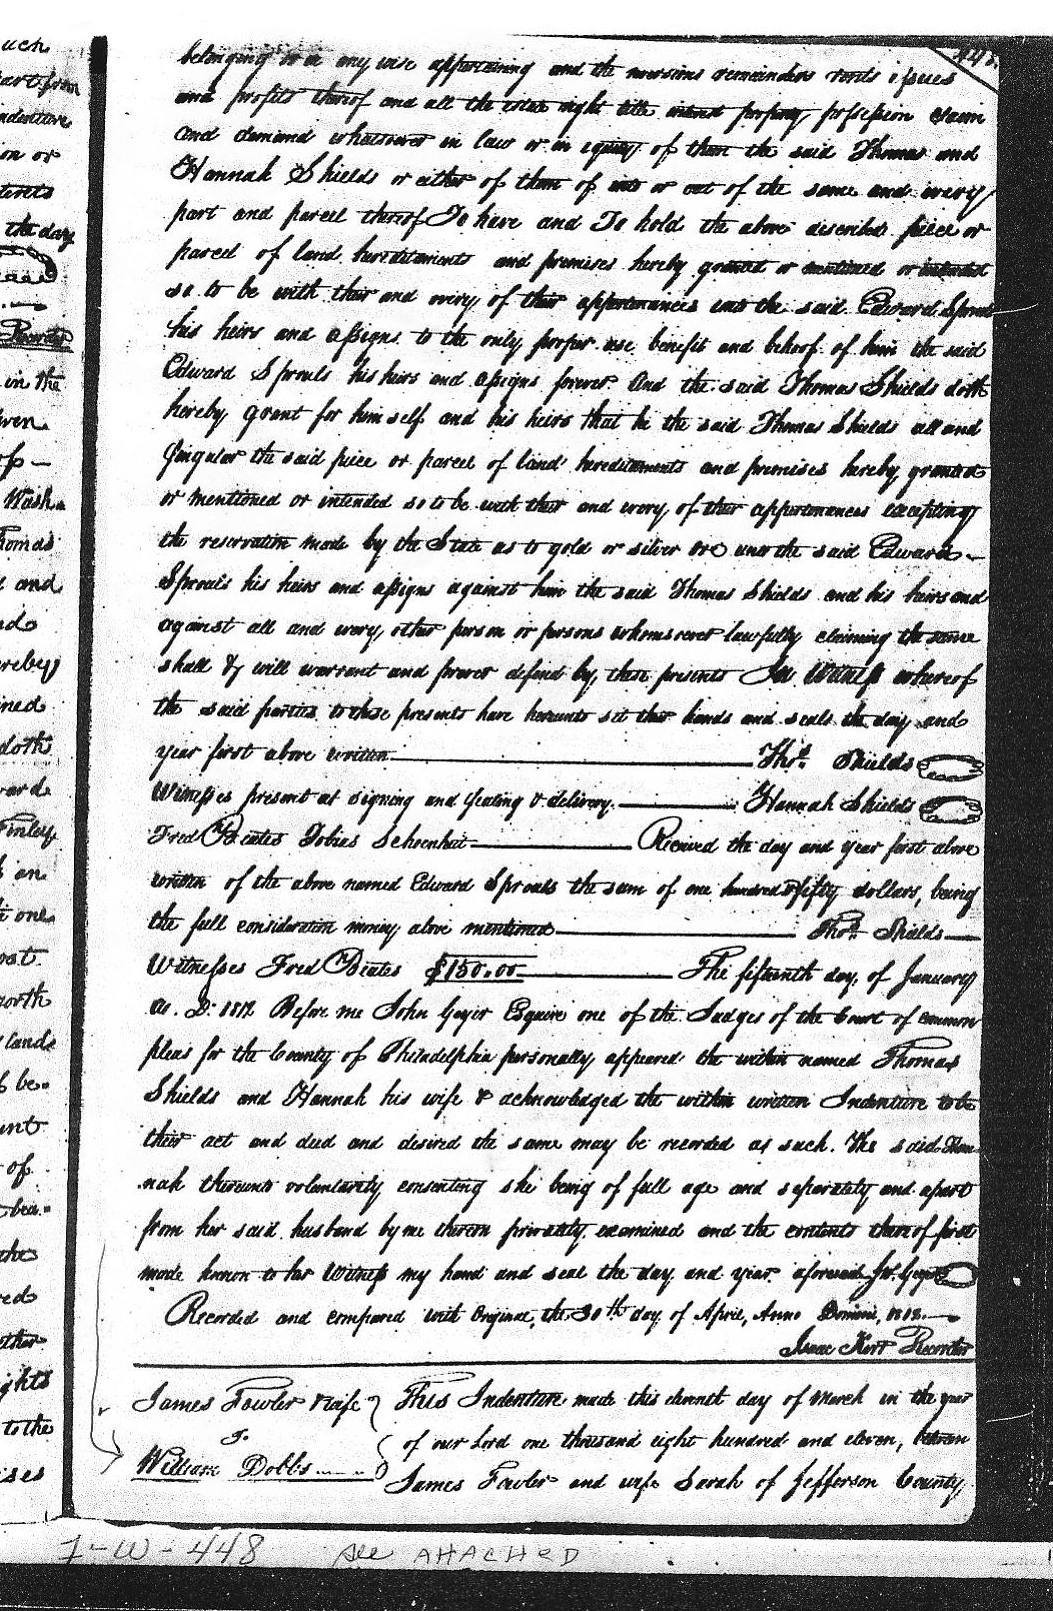 belonging or in any wise appertaining and the reversions remainders rents issues
and profits thereof and all the estate right title interest property possession claim
and demand whatsoever in law or in equity of them the said Thomas and
Hannah Shields or either of them of into or out of the same and every
part and parcel thereof To have and To hold the above described piece or
parcel of land hereditaments and premises hereby granted or mentioned or intended
so to be with their and every of their appertenances unto the said Edward Sprouls
his heirs and assigns to the only proper use benefit and behoof of him the said
Edward Sprouls his heirs and assigns forever And the said Thomas Shields doth
hereby grant for himself and his heirs that he the said Thomas Shields all and
Singular the said piece or parcel of land hereditaments and premises hereby granted
or mentioned or intended so to be with their and every of their appertenances excepting
the reservation made by the State as to gold or silver ore unto the said Edward
Sprouls his heirs and assigns against him the said Thomas Shields and his heirs and
against all and every other person or persons whomsoever lawfully claiming the same
shall & will warrant and forever defend by these presents In Witness whereof
the said parties to these presents have hereunto set their hands and seals the day and
year first above written Thos. Shields
Witnesses present at signing and Sealing & delivery. Hannah Shields
Fred Beates Tobias Schoenhut Received the day and year first above
written of the above named Edward Sprouls the sum of one hundred & fifty dollars, being
the full consideration money above mentioned Thos. Shields
Witnesses Fred Beates $150.00 The fifteenth day of January
A. D. 1812 Before me John Geyer Esquire one of the Judges of the Court of common
pleas for the County of Philadelphia personally appeared the within named Thomas
Shields and Hannah his wife & acknowledged the within written Indenture to be
their act and deed and desired the same may be recorded as such. The said Han
nah thereunto voluntarily consenting she being of full age and separately and apart
from her said husband by me therein privately examined and the contents thereof first
made known to her Witness my hand and seal the day and year aforesaid Jn. Geyer
Recorded and compared with Original, the 30th day of April, Anno Domini, 1812.
Isaac Kerr Recorder
James Fowler & wife This Indenture made this eleventh day of March in the year
To of our Lord one thousand eight hundred and eleven, between
William Dobbs James Fowler and wife Sarah of Jefferson County,
1-W-448 see ATTACHED